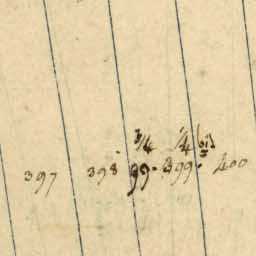 3/4 1/4
397 398 99. 399. 400